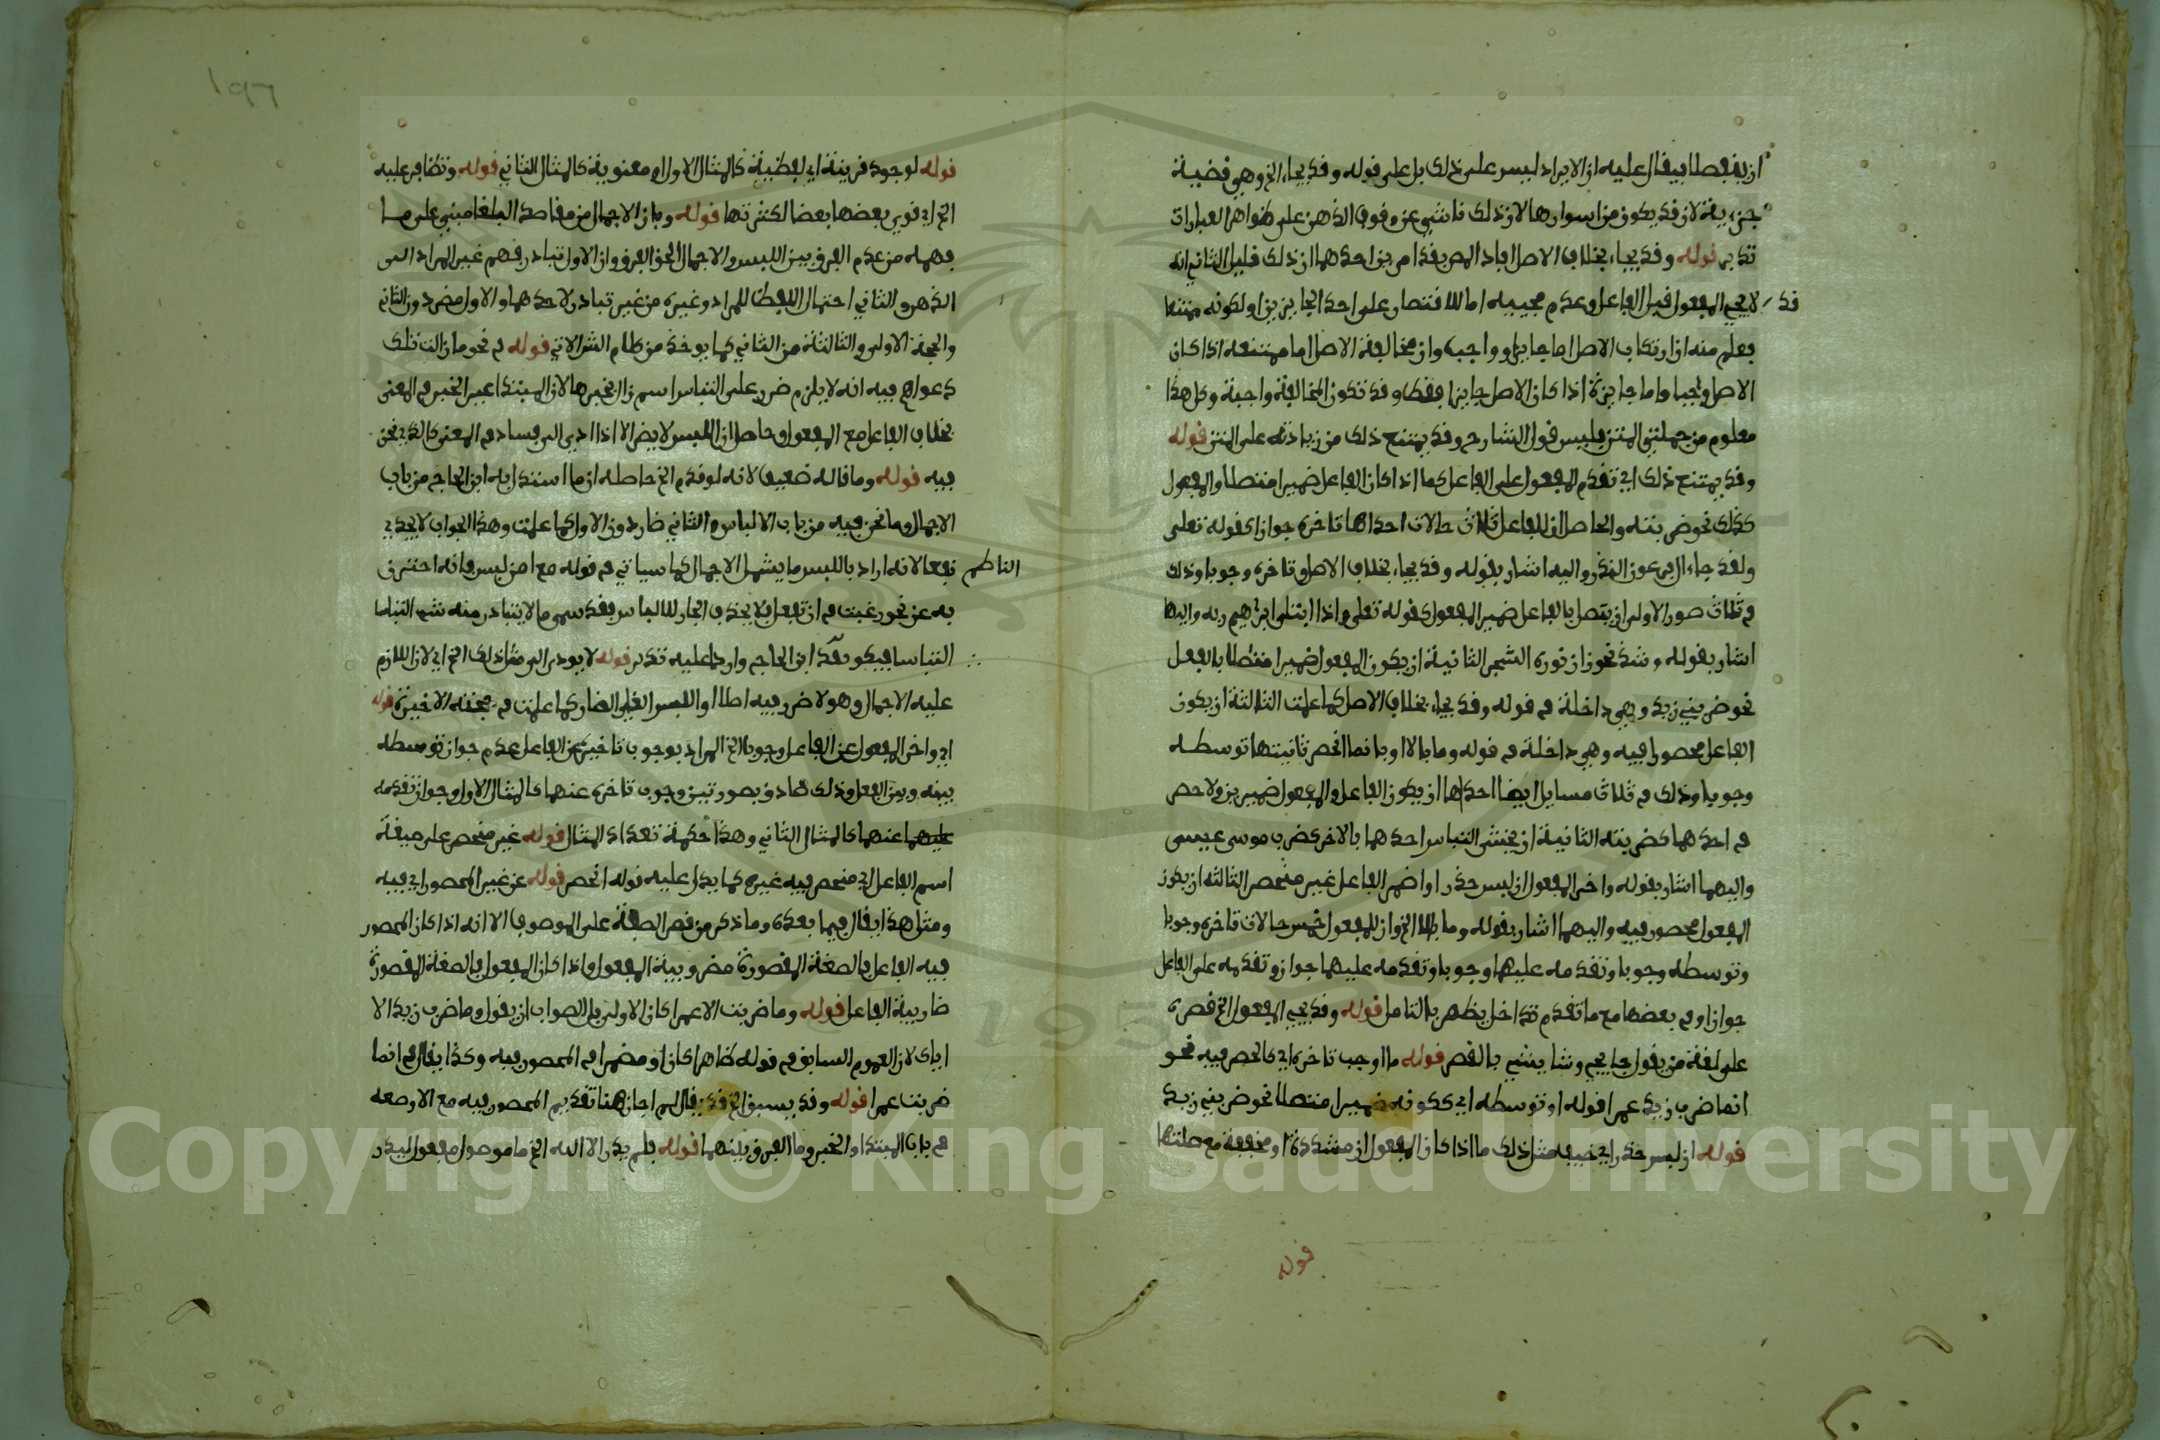 ان يفعطا بيفال عليه ان الايراد ليس على ذلك بل على قوله وقد يجاء الخ وهي قضية
جزءية لان قد يكون من اسوارها لان ذلك ناشي عن وقوف الذهن على ظواهر العبارات
تدبر قوله وقد يجاء بخلاف الاصل اباد المص بقد امرين احدهما ان ذلك قليل الثاني انه
قد لا يجي المفعول قبل الفاعل وعدم مجييه اما للاقتصار على احد الجايزين او لكونه ممتنعا
فعلم منه ان ارتكاب الاصل اما جايز او واجب وان مخالفة الاصل اما ممتنعة اذا كان
الاصل واجبا واما جايزة اذا كان الاصل جايزا فقط وقد تكون المخالفة واجبة وكل هذا
معلوم من جملتي المتن فليس قول الشارح وقد يمتنع ذلك من زيادته على المتن قوله
وقد يمتنع ذلك اي تقدم المفعول على الفاعل كما اذا كان الفاعل ضميرا متصلا والمفعول
كذلك نحو ضربته والحاصل ان للفاعل ثلاث حالات احداها تاخره جوازا كقوله تعلى
ولقد جاء ال فرعون النذر واليه اشار بقوله وقد يجاء بخلاف الاصل وتاخره وجوبا وذلك
في ثلاث صور الاولى ان يتصل بالفاعل ضمير المفعول كقوله تعلى واذا ابتلى ابرهيم ربه واليها
اشار بقوله وشذ نحو زان نوره الشجر الثانية ان يكون المفعول ضميرا متصلا بالفعل
نحو ضربني زيد وهي داخلة في قوله وقد يجاء بخلاف الاصل كما علمت الثالثة ان يكون
الفاعل محصورا فيه وهي داخلة في قوله وما بالا او بانما انحصر ثانيتها توسطه
وجوبا وذلك في ثلاث مسايل ايضا احداها ان يكون الفاعل والمفعول ضميرين ولا حصر
في احدهما كضربته الثانية ان يخشى التباس احدهما بالاخر كضرب موسى عيسى
واليهما اشار بقوله واخر المفعول ان لبس حذر او اضمر الفاعل غير منحصر الثالثة ان يكون
المفعول محصور فيه واليهما اشار بقوله وما بالا الخ وان للمفعول خمس حالات تاخره وجوبا
وتوسطه وجوبا وتقدمه عليهما وجوبا وتقدمه عليهما جوازا وتقدمه على الفاعل
جوازا وفي بعضها مع ما تقدم تداخل يظهر بالتامل قوله وقد يجي المفعول الخ قصره
على لغة من يقول جا يجي وشا يشي بالقصر قوله ما اوجب تاخره اي كالحصر فيه نحو
انما ضرب زيد عمرا قوله او توسطه اي ككونه ضميرا متصلا نحو ضربني زيد
قوله ان لبس حذر اي خيف مثل ذلك ما اذا كان المفعول ان مشددة او مخففة مع صلتها
قوله
قوله لوجود قرينة اي لفظية كالمثال الاول او معنوية كالمثال الثاني قوله وتظافر عليه
الخ اي قوي بعضها بعضا لكثرتها قوله وبان الاجمال من مقاصد البلغا مبني على ما
فهمه من عدم الفرق بين اللبس والاجمال الحق الفرق وان الاول تبادر فهم غير المراد الى
الذهن والثاني احتمال اللفظ للمراد وغيره من غير تبادر لاحدهما والاول مضر دون الثاني
والحجة الاولى والثالثة من الثاني كما يوخذ من كلام الش الاتي قوله في نحو ما زالت تلك
دعواهم فيه انه لا يلزم ضرر على التباس اسم زال بخبرها لان المبتدا عين الخبر في المعنى
بخلاف الفاعل مع المفعول وحاصل ان اللبس لا يضر الا اذا ادى الى فساد في المعنى كالذي نحن
فيه قوله وما قاله ضعيف لانه لو قدم الخ حاصله ان ما استند اليه ابن الحاج من باب
الاجمال وما نحن فيه من باب الالباس والثاني ضار دون الاول كما علمت وهذا الجواب لا يجدي
الناظم نفعا لانه اراد باللبس ما يشمل الاجمال كما سياتي في قوله مع امن لبس فانه احترز
به عن نحو رغبت في ان تفعل فلا يحذف الجار للالباس فقد سمى ما لا يتبادر منه شي التباسا
التباسا فيكو نقد ابن الحاج واردا عليه تدبر قوله لا يودي الى مثل ذلك الخ اي لان اللازم
عليه الاجمال وهو لا ضرر فيه اصلا او اللبس الغير الضار كما علمت في حجته الاخيرة قوله
اي واخر المفعول عن الفاعل وجوبا الخ المراد بوجوب تاخيره عن الفاعل عدم جواز توسطه
بينه وبين الفعل وذلك صادق بصورتين وجوب تاخره عنهما كالمثال الاول وجواز تقدمه
عليهما عنهما كالمثال الثاني وهذا حكمة تعداد المثال قوله غير منحصر على صيغة
اسم الفاعل اي منحصر فيه غيره كما يدل عليه قوله انحصر قوله عن غير المحصور اي فيه
ومثل هذا يقال فيما بعده وما ذكر من قصر الصفة على الموصوف الا انه اذا كان المحصور
فيه الفاعل فالصفة المقصورة مضروبية المفعول واذا كان المفعول فالصفة المقصورة
ضاربية الفاعل قوله وما ضربت الا عمرا كان الاولى بل الصواب ان يقول وما ضرب زيد الا
اياي لان العموم السابق في قوله ظاهرا كان او مضمرا في المحصور فيه وكذا يقال في انما
ضربت عمرا قوله وقد يسبق الخ قد يقال لم اجاز هنا تقديم المحصور فيه مع الا ومنعه
في باب المبتدا والخبر وما الفرق بينهما قوله فلم يدر الا الله الخ ما موصول مفعول ليدر